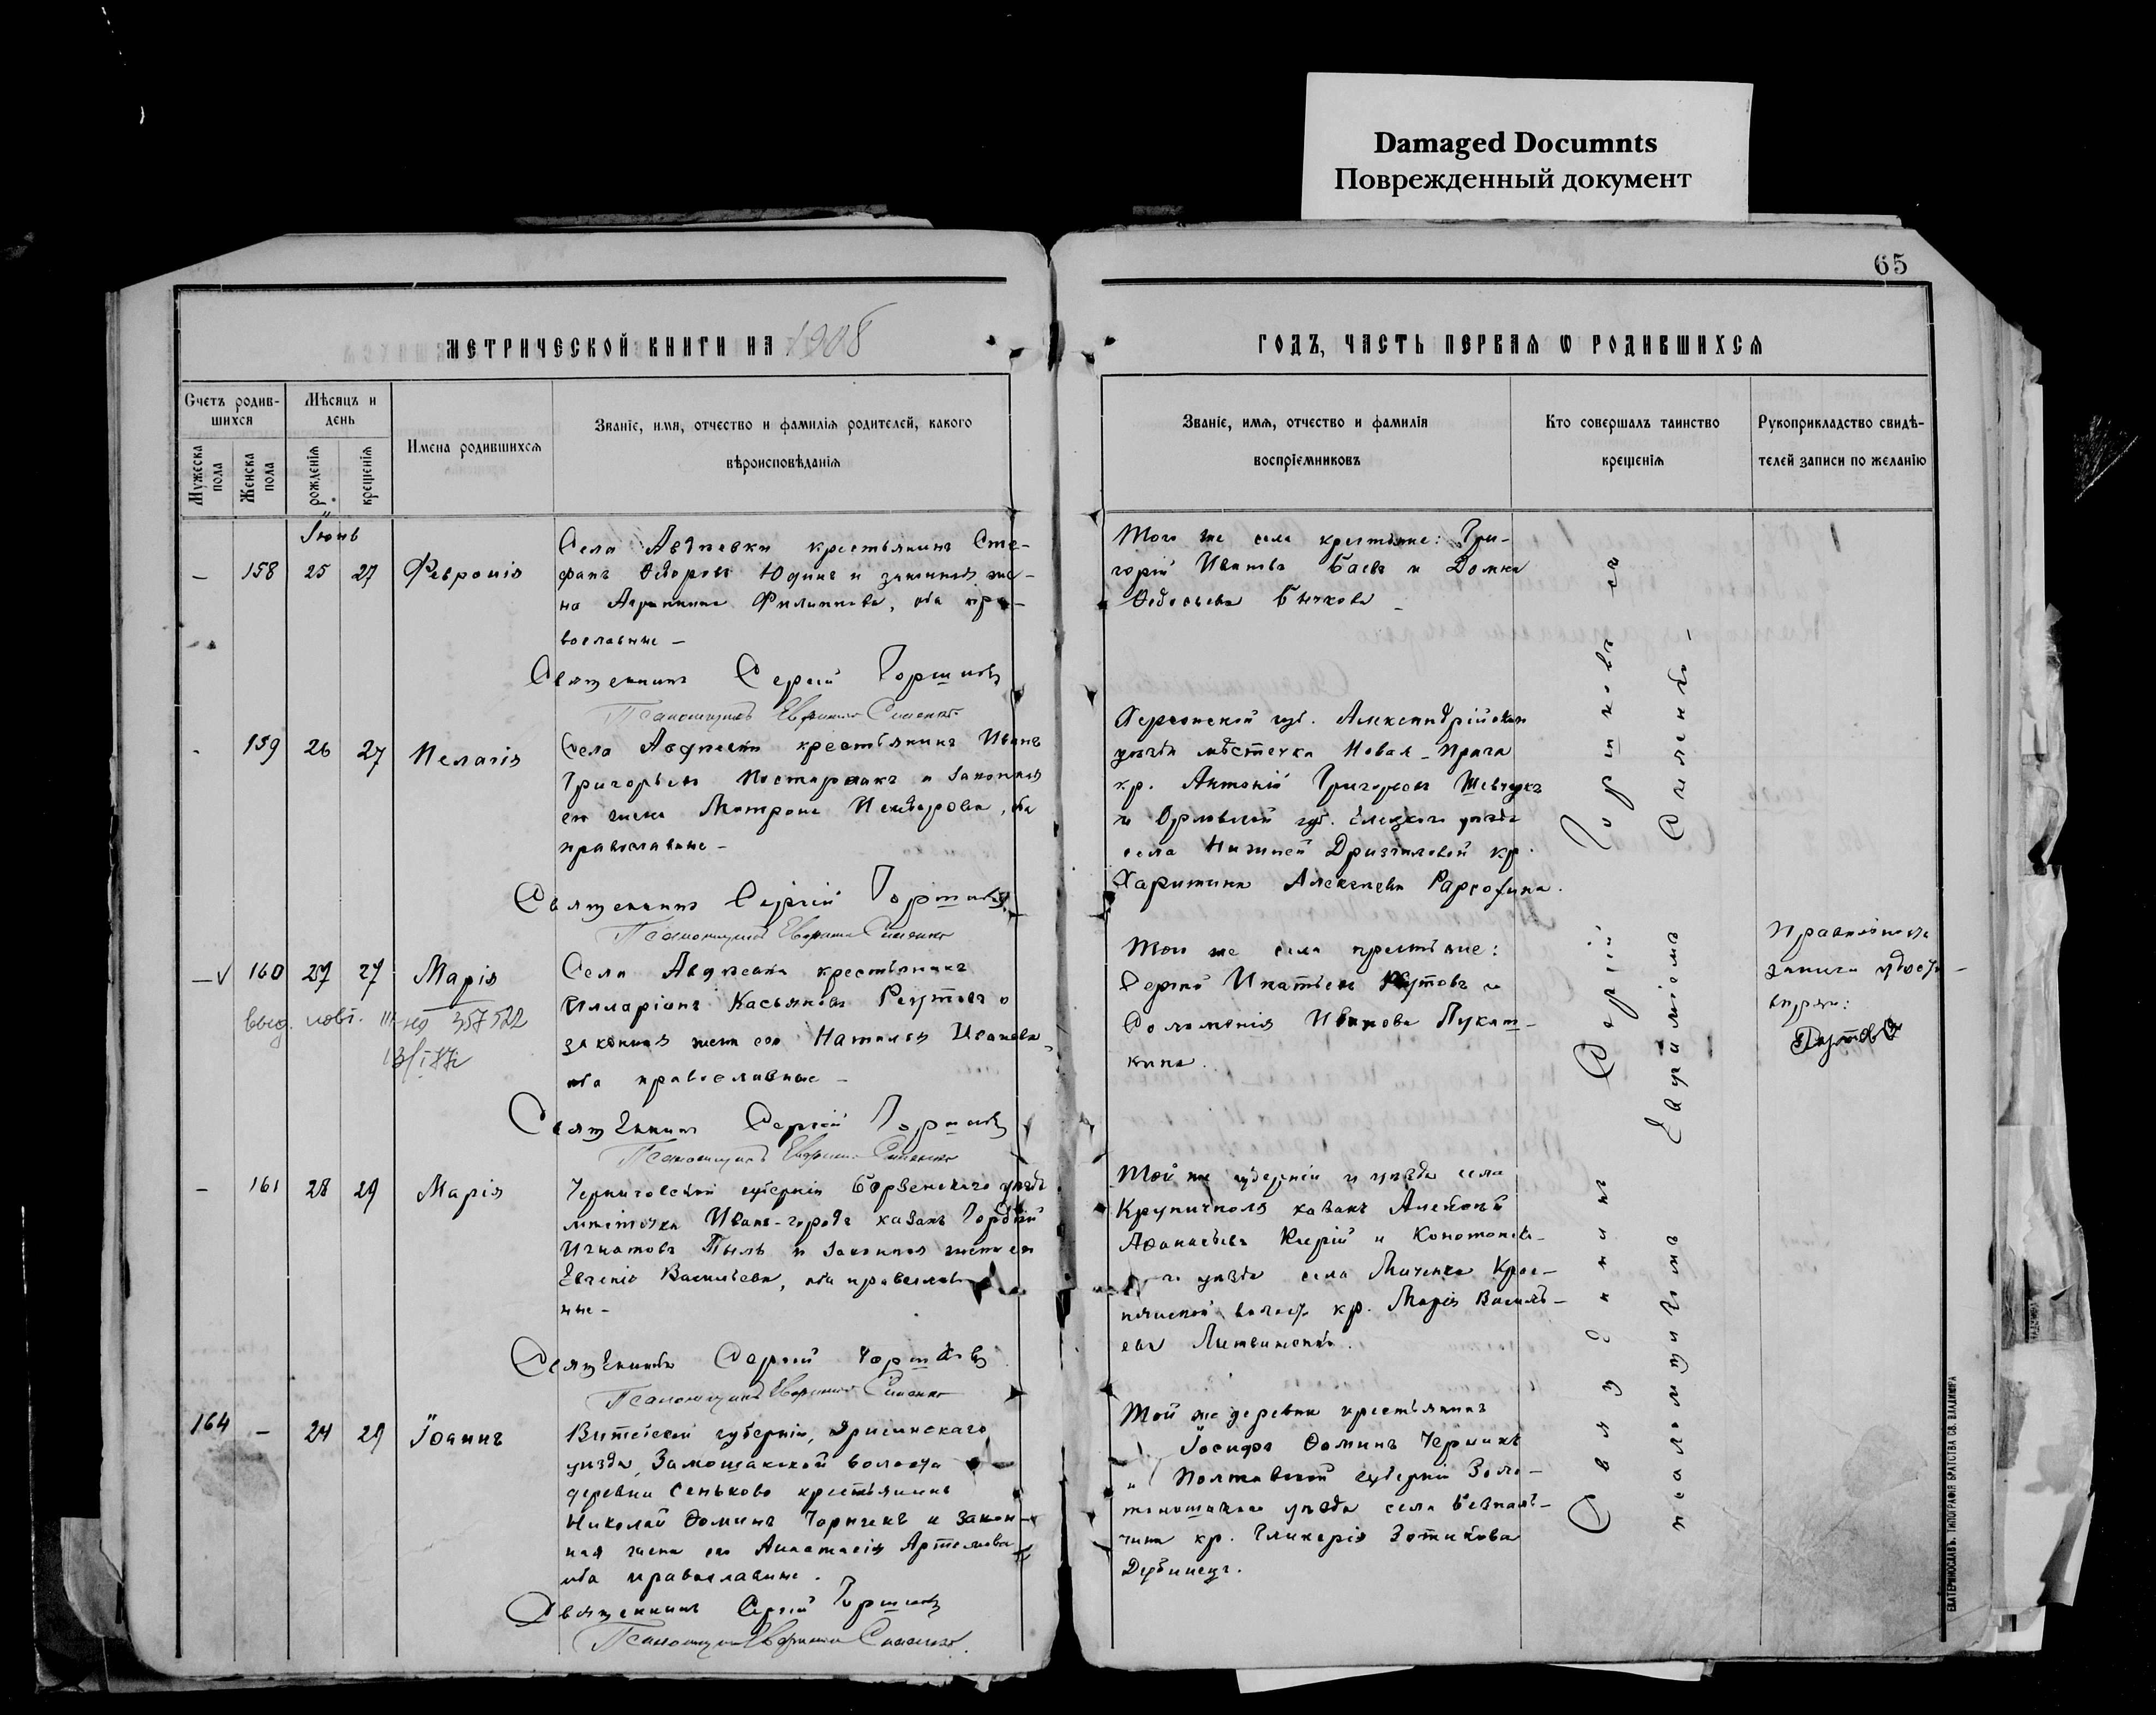 Damaged Documnts
Поврежденный документ
65
МЕТРИЧЕСКОЙ КНИГИ НА 1908
ГОДЪ, ЧАСТЬ ПЕРВАЯ Ѡ РОДИВШИХСЯ
Счетъ родив-
шихся
Мужеска пола
Женска пола
Мѣсяцъ и
день
рожденія
крещенія
Имена родившихся
Званіе, имя, отчество и фамилія родителей, какого
вѣроисповѣданія
Званіе, имя, отчество и фамилія
воспріемниковъ
Кто совершалъ таинство
крещенія
Рукоприкладство свидѣ-
телей записи по желанію
Іюнь
– 158 25 27 Февронія
Села Авдѣевки крестьянинъ Сте-
фанъ Ѳедоровъ Юдинъ и законная же-
на Агрипина Филиппова, оба пра-
вославные –
Священникъ Сергій Горшковъ
Псаломщикъ Сименко
Того же села крестьяне: Гри-
горій Ивановъ Баевъ и Домна
Ѳедосьева Бычкова –
159 26 27 Пелагія
Села Авдѣевки крестьянинъ Иванъ
Григорьевъ и законная
его жена Матрона, оба
православные –
Священникъ Сергій Горшковъ
Псаломщикъ Сименко
Херсонской губ. Александрійскаго
уѣзда мѣстечка Новая-Прага
кр. Антоній Григорьевъ Шевчукъ
и Орловской губ. Елецкаго уѣзда
села Нижней кр.
Харитина Алексѣева
–√ 160 27 27 Марія
выд. повт. III-ЯЮ 357522
Села Авдѣевки крестьянинъ
Илларіонъ Касьяновъ Реутовъ и
законная жена его Наталья Иванова,
оба православные –
Священникъ Сергій Горшковъ
Псаломщикъ Сименко
Того же села крестьяне:
Сергій Игнатьевъ Реутовъ и
Соломонія Иванова Лукаш-
кина.
записи удосто-
вѣряю:
– 161 28 29 Марія
Черниговской губерніи Борзенскаго уѣзда
мѣстечка Ивань-города казакъ Гордій
Игнатовъ Пыль и законная жена его
Евгенія Васильева, оба православ-
ные –
Священникъ Сергій Горшковъ
Псаломщикъ Сименко
Той же губерніи и уѣзда села
Крупичполя казакъ Алексѣй
Аѳанасьевъ и Конотопска-
го уѣзда села
волости кр. Марія Василь-
ева Литвиненко.
164 – 24 29 Іоаннъ
Витебской губерніи, Дрисинскаго
уѣзда, Замошанской волости
деревни Сеньково крестьянинъ
Николай Ѳоминъ и закон-
ная жена его Анастасія Артемова
оба православные.
Священникъ Сергій Горшковъ
Псаломщикъ Сименко
Той же деревни крестьянинъ
Іосифъ Ѳоминъ
и Полтавской губерніи Золо-
тоношскаго уѣзда села Безпаль-
чина кр. Гликерія Зотикова
Священникъ Сергій Горшковъ съ
псаломщикомъ Сименко –
ЕКАТЕРИНОСЛАВЪ. ТИПОГРАФІЯ БРАТСТВА СВ. ВЛАДИМІРА